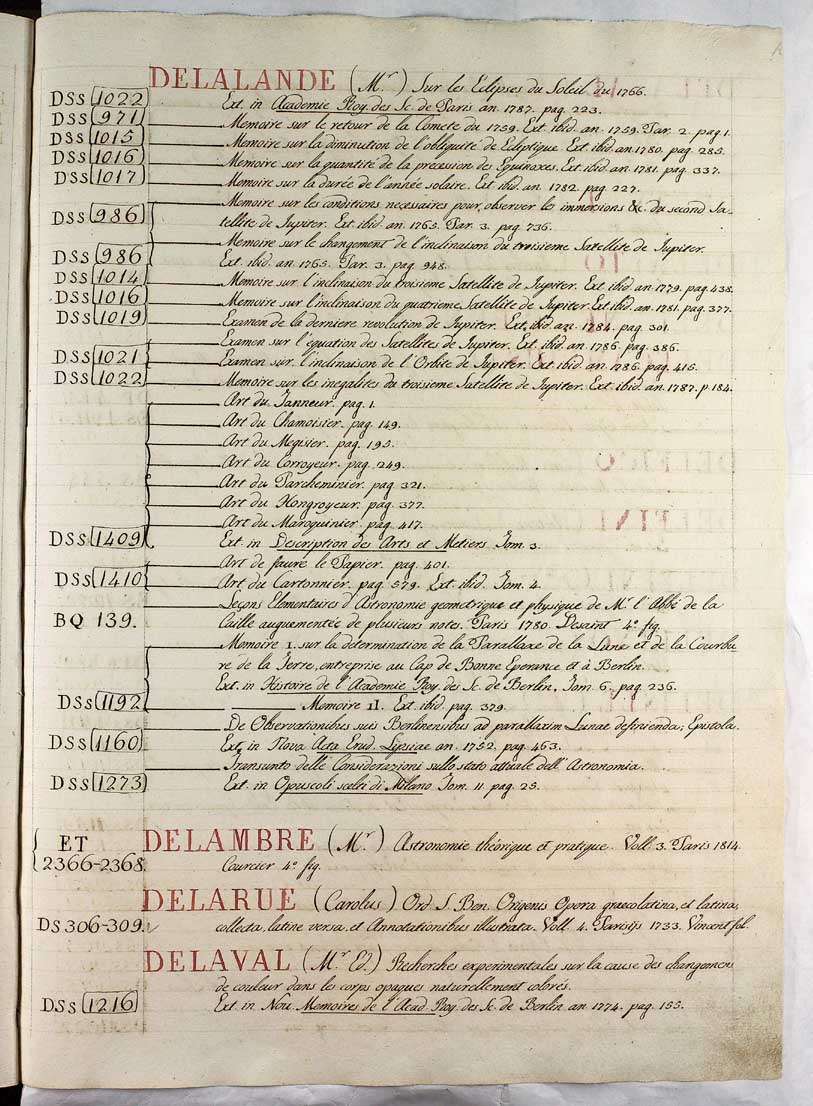 DELALANDE (Mr) Sur les Eclipses du Soleil du 1766.
DSs 1022 Ext. in Academie Roy. des Sc. de Paris an. 1787. pag. 223.
DSs 971 Memoire sur le retour de la Comete du 1759. Ext. ibid. an. 1759. Par. 2. pag. 1.
DSs 1015 Memoire sur la diminution de l'obliguité de Ecliptique. Ext. ibid. an. 1780. pag. 285.
DSs 1016 Memoire sur la quantité de la précession des Equinoxes. Ext. ibid. an. 1781. pag. 337.
DSs 1017 Memoire sur la durée de l'année solaire. Ext. ibid. an. 1782. pag. 227.
Memoire sur les conditions necessaires pour observer les immersions &c. du second Sa-
DSs 986 tellite de Jupiter. Ext. ibid. an. 1765. Par. 3. pag. 736.
Memoire sur le changement de l'inclinaison du troisieme Satellite de Jupiter.
DSs 986 Ext. ibid. an 1765. Par. 3. pag. 948.
DSs 1014 Memoire sur l'inclinaison du troisieme Satellite de Jupiter. Ext. ibid. an. 1779. pag. 438.
DSs 1016 Memoire sur l'inclinaison du quatrieme Satellite de Jupiter. Ext. ibid. an. 1781. pag. 377.
DSs 1019 Examen de la derniere revolution de Jupiter. Ext. ibid. an. 1784. pag. 301.
Examen sur l'equation des Satellites de Jupiter. Ext. ibid. an. 1786. pag. 386.
DSs 1021 Examen sur l'inclinaison de l'Orbite de Jupiter. Ext. ibid. an. 1786. pag. 415.
DSs 1022 Memoire sur les inegalites du troisieme Satellite de Jupiter. Ext. ibid. an. 1787. p. 184.
Art du Tanneur. pag. 1.
Art du Chamoisier. pag. 149.
Art du Megisier. pag. 195.
Art du Corroyeur. pag. 249.
Art du Parcheminier. pag. 321.
Art du Hongroyeur. pag. 377.
Art du Maroquinier. pag. 417.
DSs 1409 Ext. in Description des Arts et Metiers. Tom. 3.
Art de faire le Papier. pag. 401.
DSs 1410 Art du Cartonnier. pag. 579. Ext. ibid. Tom. 4.
Leçons Elementaires d'Astronomie geometrique et physique de Mr l'Abbé de la
BQ 139. Caille augmentée de plusieurs notes. Paris 1780. Desaint 4º fig.
Memoire I. sur la determination de la Parallaxe de la Lune et de la Courbu
re de la Terre, entreprise au Cap de Bonne Eperance et à Berlin.
Ext. in Histoire de l'Academie Roy. des Sc. de Berlin. Tom. 6. pag. 236.
DSs 1192 Memoire II. Ext. ibid. pag. 379.
De Observationibus suis Berlinensibus ad parallaxim Lunae definienda; Epistola.
DSs 1160 Ext. in Nova Acta Erud. Lipsiae an. 1752. pag. 463.
Transunto delle Considerazioni sullo stato attuale dell'Astronomia.
DSs 1273 Ext. in Opuscoli scelti di Milano. Tom. 11. pag. 25.
ET DELAMBRE (Mr) Astronomie théorique et pratique. Voll. 3. Paris 1814.
2366-2368. Courcier 4º fig.
DELARUE (Carolus) Ord S. Ben. Origenis Opera graecolatina, et latina,
DS 306-309. collecta, latine versa, et Annotationibus illustrata. Voll. 4. Parisijs 1733. Vincent fol.
DELAVAL (Mr Ed.) Recherches experimentales sur la cause des changemens
de couleur dans les corps opaques naturellement colorés.
DSs 1216 Ext. in Nou. Memoires de l'Acad. Roy. des Sc. de Berlin an. 1774. pag. 155.